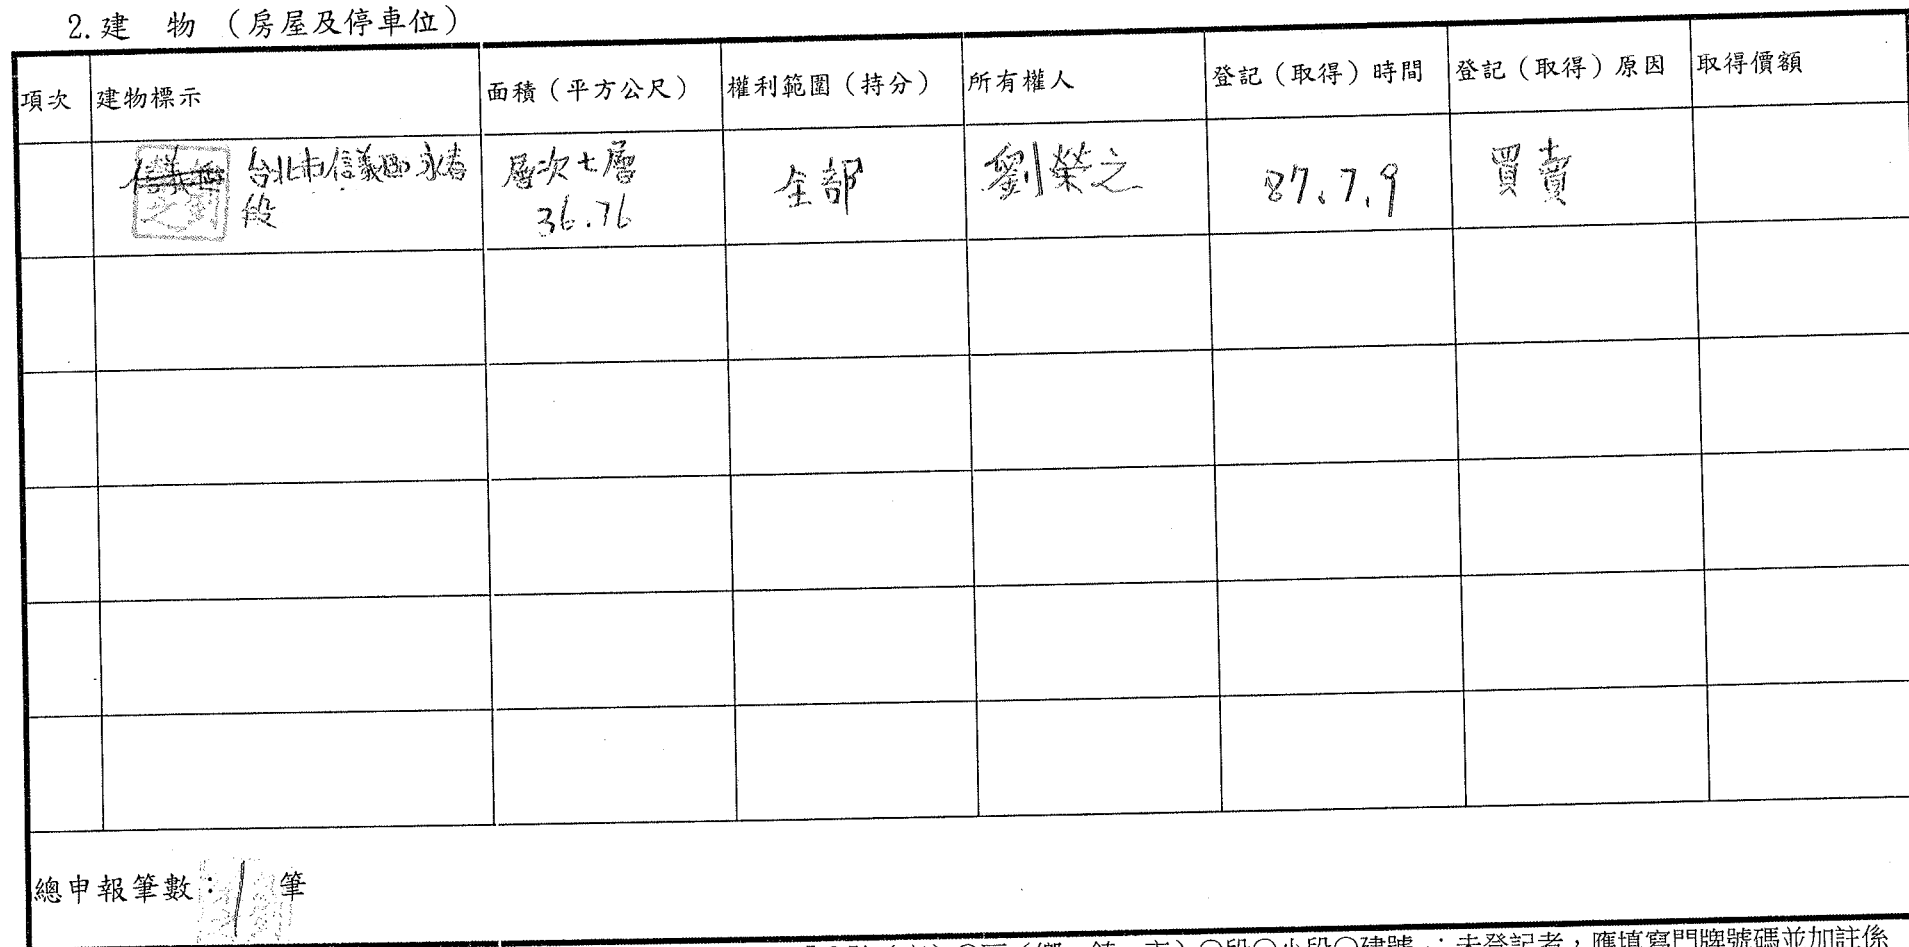 2.建　物（房屋及停車位）
項次 建物標示 面積（平方公尺） 權利範圍（持分） 所有權人 登記（取得）時間 登記（取得）原因 取得價額
台北市信義區永春 層次七層 全部 劉榮之 87.7.9 買賣
段 36.76
總申報筆數：1筆
段○小段○建號；未登記者，應填寫門牌號碼並加註係